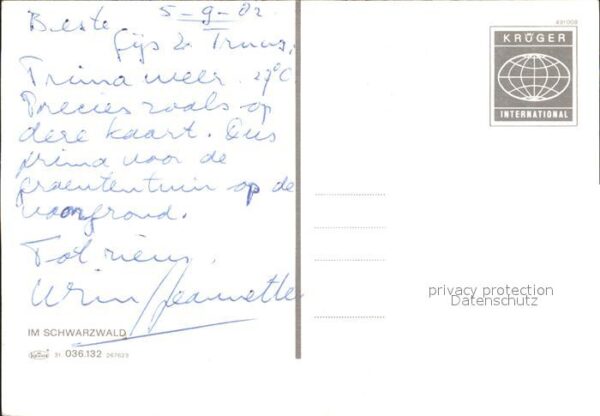 5-9-82
Beste
Gijs & Truus,
Prima weer. 27°C
Precies zoals op
deze kaart. Dus
prima voor de
groententuin op de
voorgrond.
Tot ziens,
Wim/Jeannette
IM SCHWARZWALD
Krüger 31 036.132 267623
491008
KRÜGER
INTERNATIONAL
privacy protection
Datenschutz